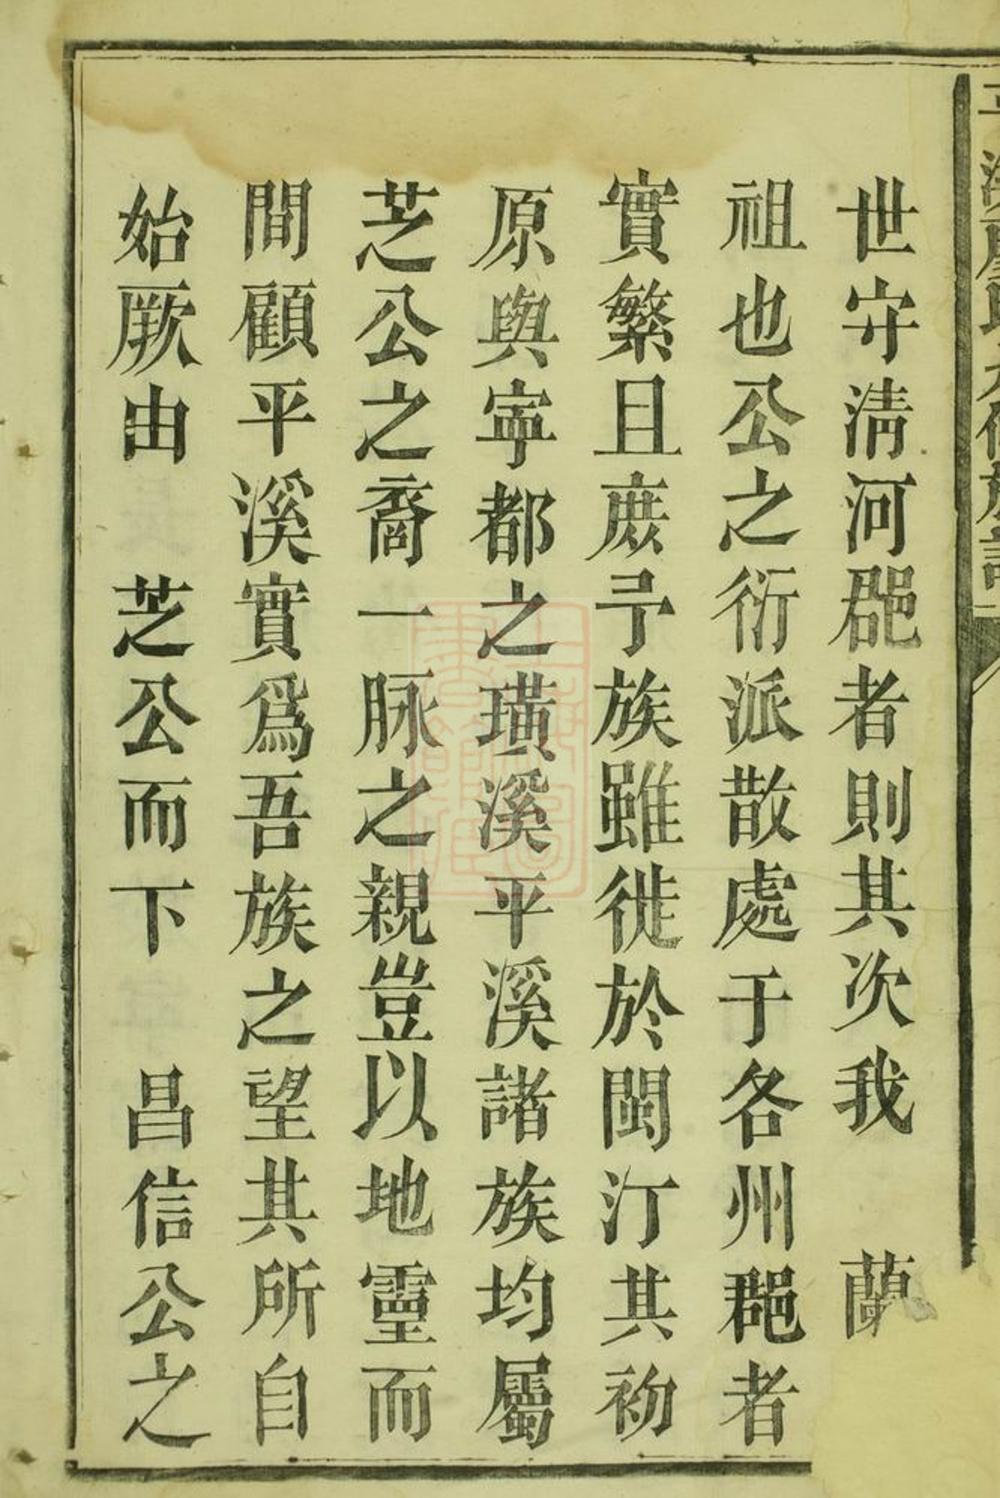 世守清河郡者則其次我　蘭
祖也公之衍派散處于各州郡者
實繁且庶予族雖徙於閩汀其初
原與寕都之璜溪平溪諸族均屬
芝公之裔一脉之親豈以地靈而
間顧平溪實爲吾族之望其所自
始厥由　芝公而下　昌信公之